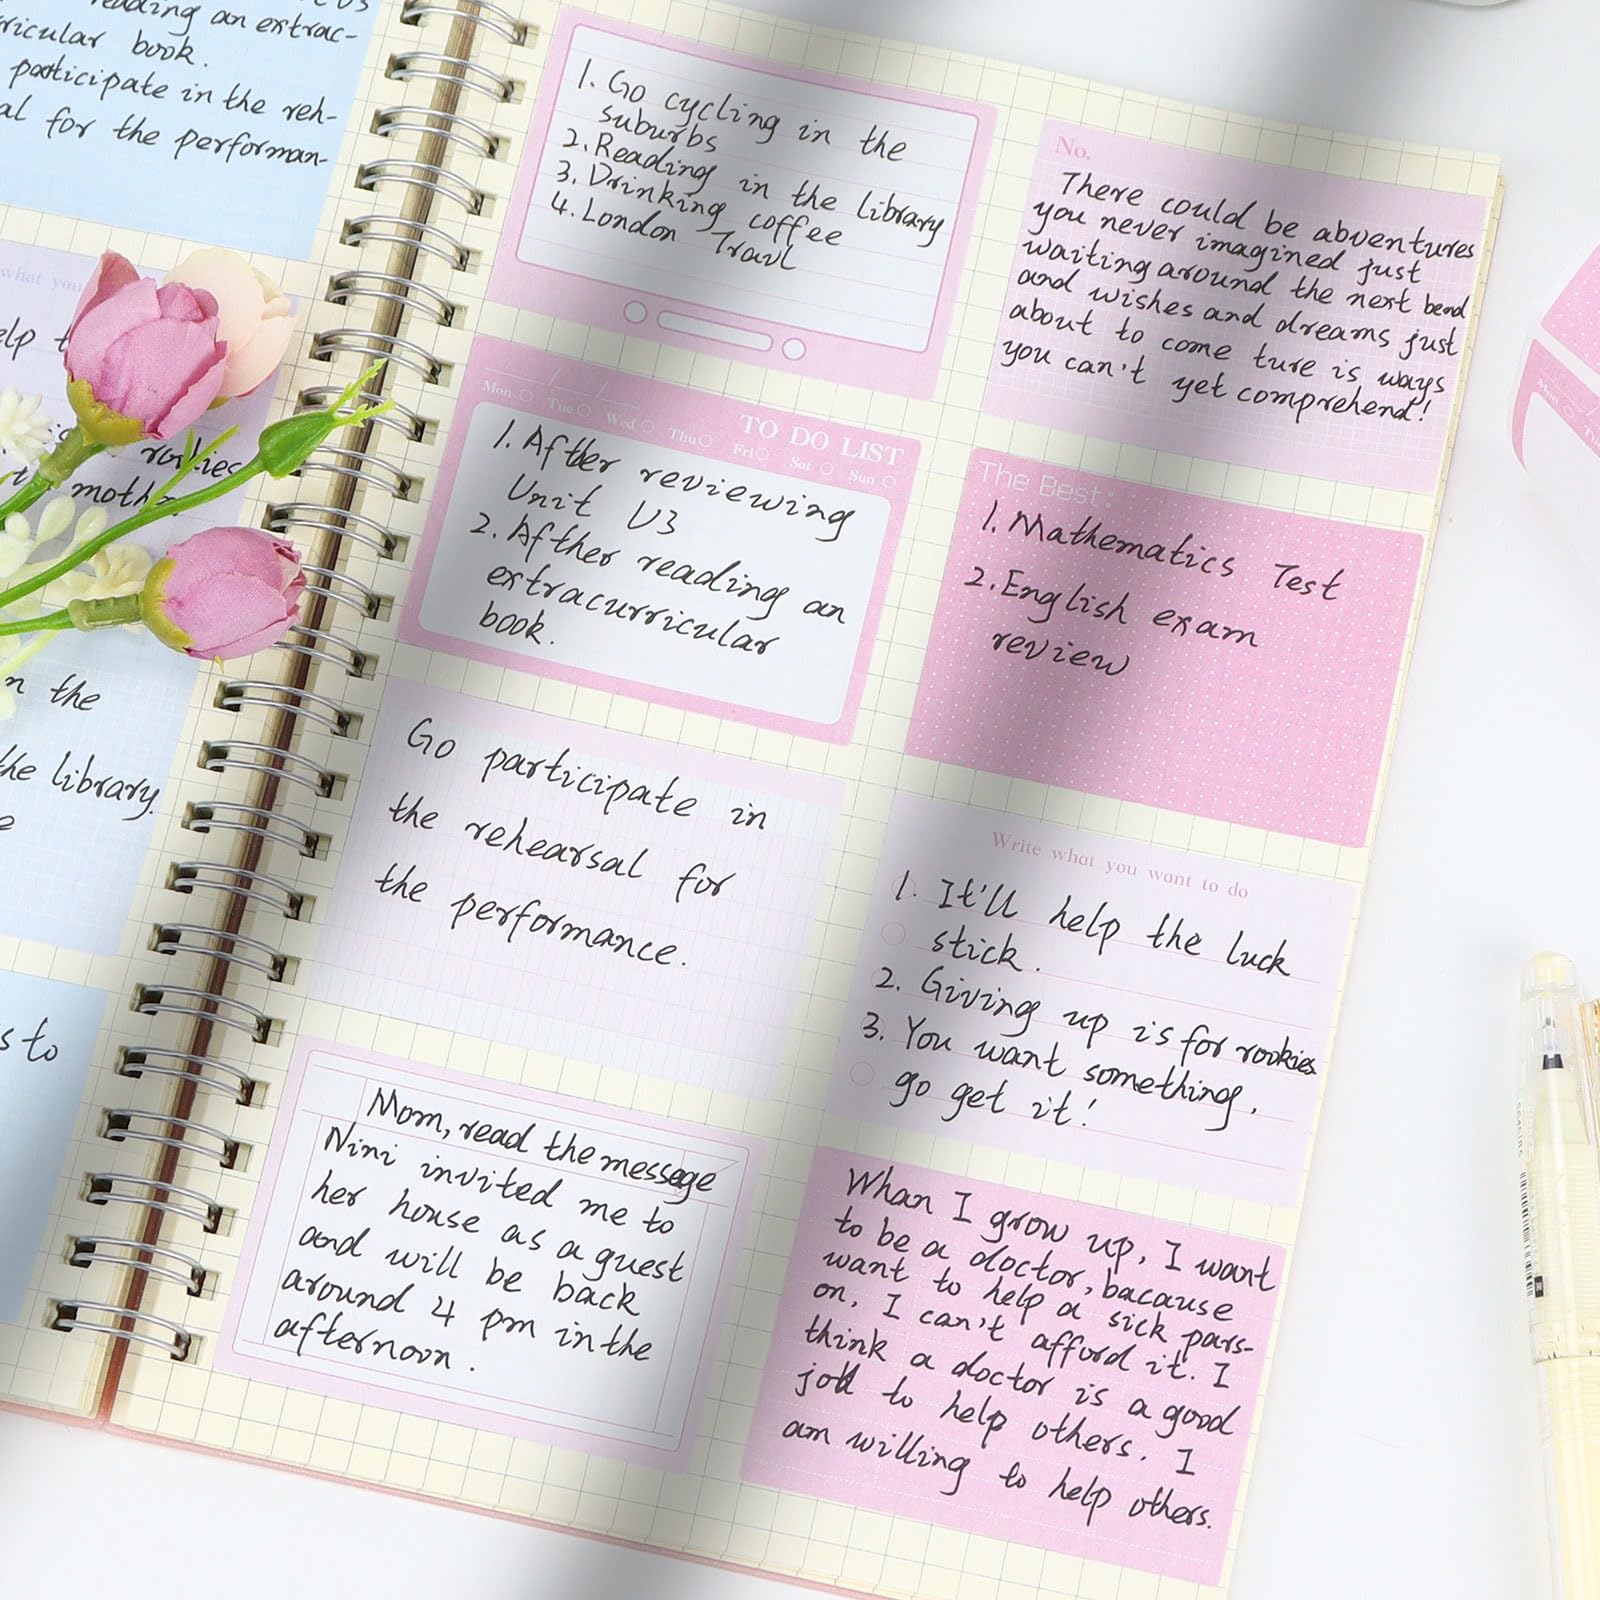 reading an extrac-
ricular book.
participate in the reh-
al for the performan-
what you
elp t
rookies
moth
n the
the library.
e
s to
1. Go cycling in the
suburbs
2. Reading in the library
3. Drinking coffee
4. London Travl
Mon Tue Wed Thu Fri Sat Sun
TO DO LIST
1. Afther reviewing
Unit U3
2. Afther reading an
extracurricular
book.
Go participate in
the rehearsal for
the performance.
Mom, read the message
Nini invited me to
her house as a guest
and will be back
around 4 pm in the
afternoon.
No.
There could be abventures
you never imagined just
waiting around the next bend
and wishes and dreams just
about to come ture is ways
you can't yet comprehend!
The Best:
1. Mathematics Test
2. English exam
review
Write what you want to do
1. It'll help the luck
stick.
2. Giving up is for rookies
3. You want something,
go get it!
Whan I grow up, I want
to be a doctor, bacause
want to help a sick pars-
on, I can't afford it. I
think a doctor is a good
job to help others. I
am willing to help others.
Mon